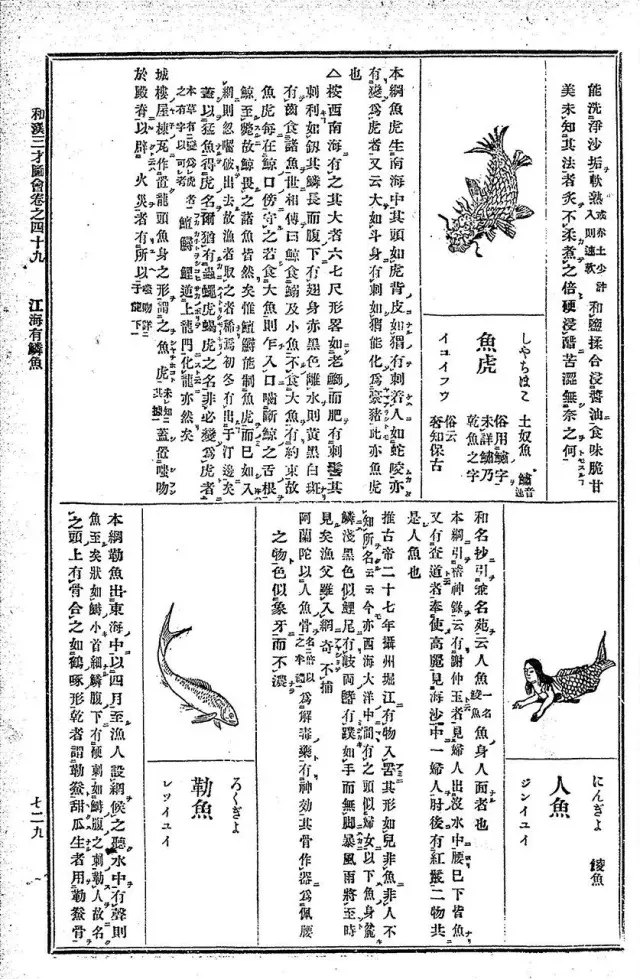 能洗淨沙垢軟熟或赤土少許入則速軟和鹽揉合浸醬油食味脆甘
美未知其法者炙不柔煮之倍硬浸醋苦澀無奈之何
しやちほこ
魚虎
イユイフウ
土奴魚 鱐音速
俗用鱐字
未詳鱐乃
乾魚之字
俗云
奢知保古
本綱魚虎生南海中其頭如虎背皮如猬有刺着人如蛇咬亦
有變爲虎者又云大如斗身有刺如猬能化爲豪豬此亦魚虎
也
△按西南海有之其大者六七尺形畧如老鰤而肥有刺鬐其
刺利如釼其鱗長而腹下有翅身赤黑色離水則黃黑白斑
有齒食諸魚世相傳曰鯨食鰯及小魚不食大魚有約束故
魚虎每在鯨口傍守之若食大魚則乍入口嚙斷鯨之舌根
鯨至斃故鯨畏之諸魚皆然矣惟鱣能制魚虎而已如入
網則忽囓破出去故漁者取之者稀焉初冬有出于汀邊矣
蓋以猛魚得虎名爾猶有蟲蠅虎蝎虎之名非必變爲虎者
本草有變爲虎者之有字以可見 鱣鱘鯉逆上龍門化龍亦然矣
城樓屋棟瓦作置龍頭魚身之形謂之魚虎未知其據蓋置嗤吻
於殿脊以辟火災者有所以乎嗤吻詳于龍下
にんぎよ
人魚
ジンイユイ
鯪魚
和名抄引兼名苑云人魚一名鯪魚魚身人面者也
本綱引稽神錄云有謝仲玉者見婦人出沒水中腰已下皆魚
又有査道者奉使高麗見海沙中一婦人肘後有紅鬣二物共
是人魚也
推古帝二十七年攝州堀江有物入罟其形如兒非魚非人不
知所名云云今亦西海大洋中間有之頭似婦女以下魚身麁
鱗淺黑色似鯉尾有岐兩鰭有蹼如手而無脚暴風雨將至時
見矣漁父雖入網奇不捕
阿蘭陀以人魚骨爲解毒藥有神効其骨作器爲佩腰
之物色似象牙而不濃
ろくぎよ
勒魚
レツイユイ
本綱勒魚出東海中以四月至漁人設網候之聽水中有聲則
魚至矣狀如鰣小首細鱗腹下有硬刺如鰣腹之刺勒人故名
之頭上有骨合之如鶴啄形乾者謂勒鯗甜瓜生者用勒鯗骨
和漢三才圖會卷之四十九 江海有鱗魚
七二九